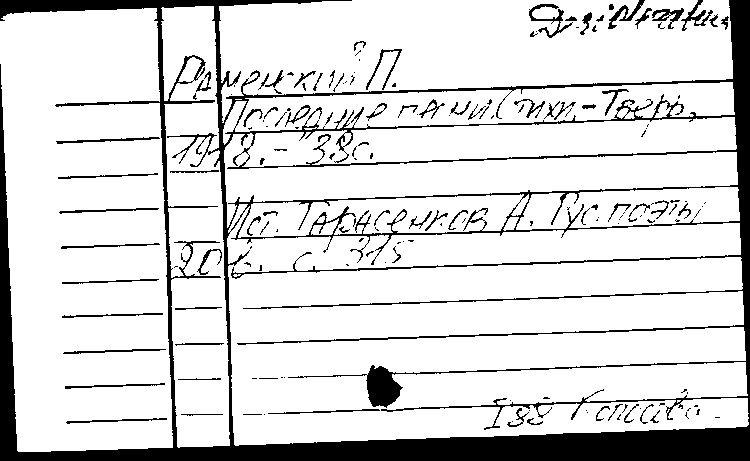 Desiderata
Раменский П.
Последние песни. Стихи. - Тверь,
1918. - 38с.
Ист. Тарасенков А. Рус. поэты
20 в. с. 315